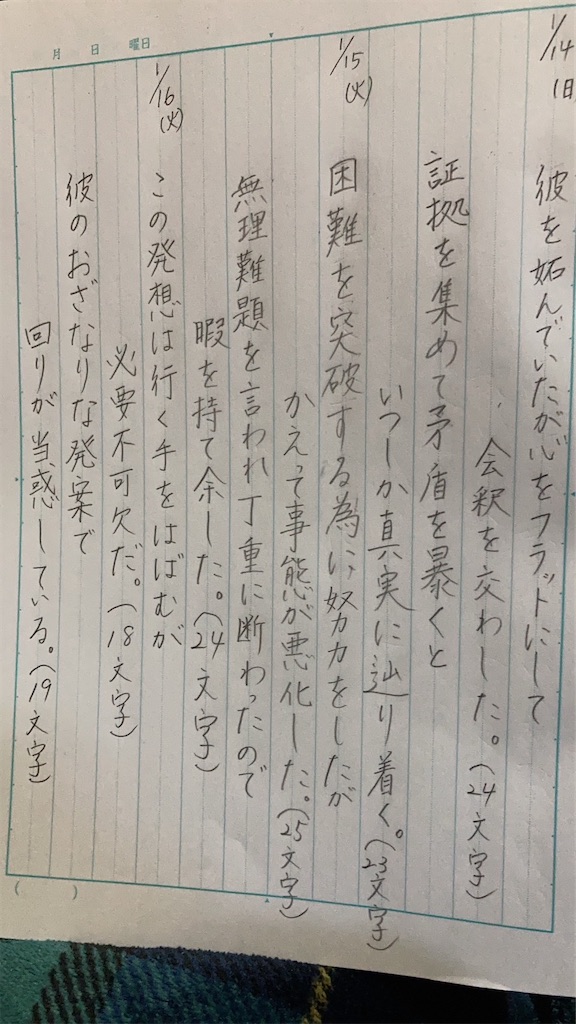 1/14(日
彼を妬んでいたが心をフラットにして
会釈を交わした。(24文字)
証拠を集めて矛盾を暴くと
いつしか真実に辿り着く。(23文字)
1/15(火)
困難を突破する為に、努力をしたが
かえって事態が悪化した。(25文字)
無理難題を言われ丁重に断わったので
暇を持て余した。(24文字)
1/16(火)
この発想は行く手をはばむが
必要不可欠だ。(18文字)
彼のおざなりな発案で
回りが当惑している。(19文字)
月 日 曜日
( )